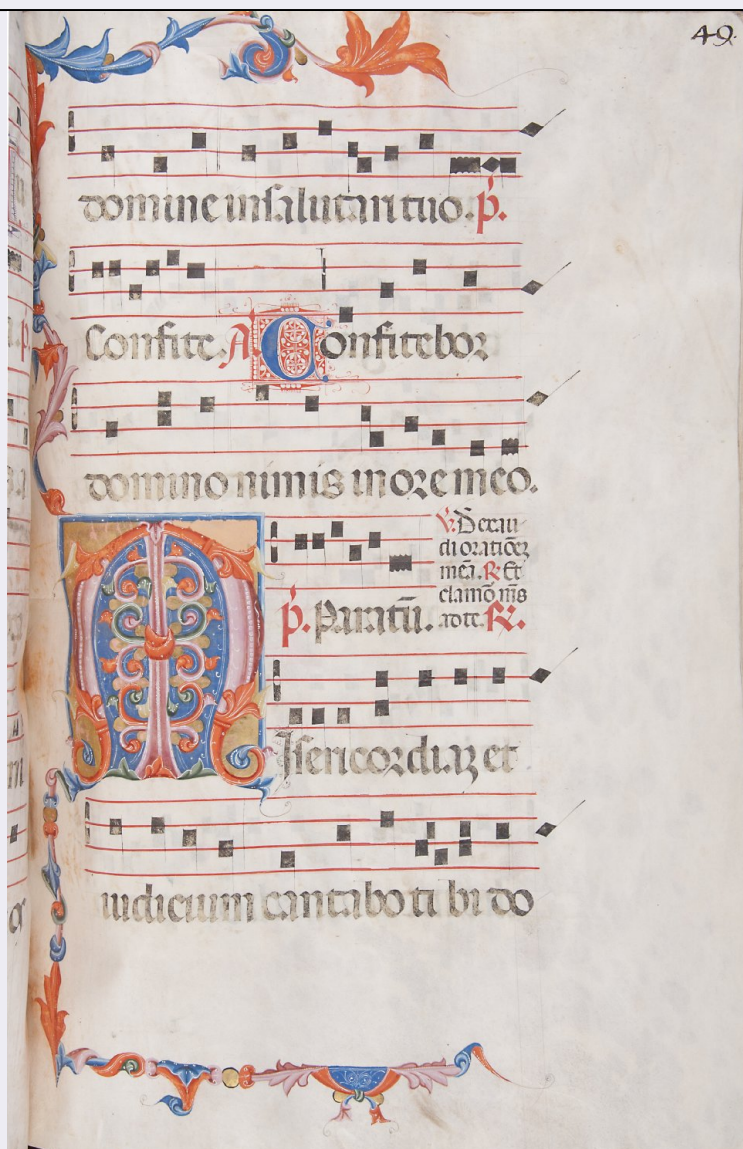 49.
domine in salutari tuo. p̄.
Confite. A. Confitebor
domino nimis in ore meo.
V. D exau-
di oratiōeȝ
meā. R Et
clamō m̄s
p̄. Paratū. ad te. R.
Misericordiaȝ et
iudicium cantabo tibi do